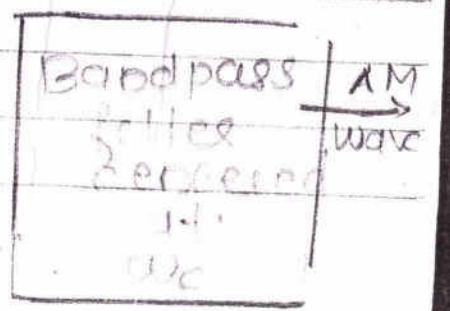 Bandpass
filter
Centered
at
ωc
AM
wave